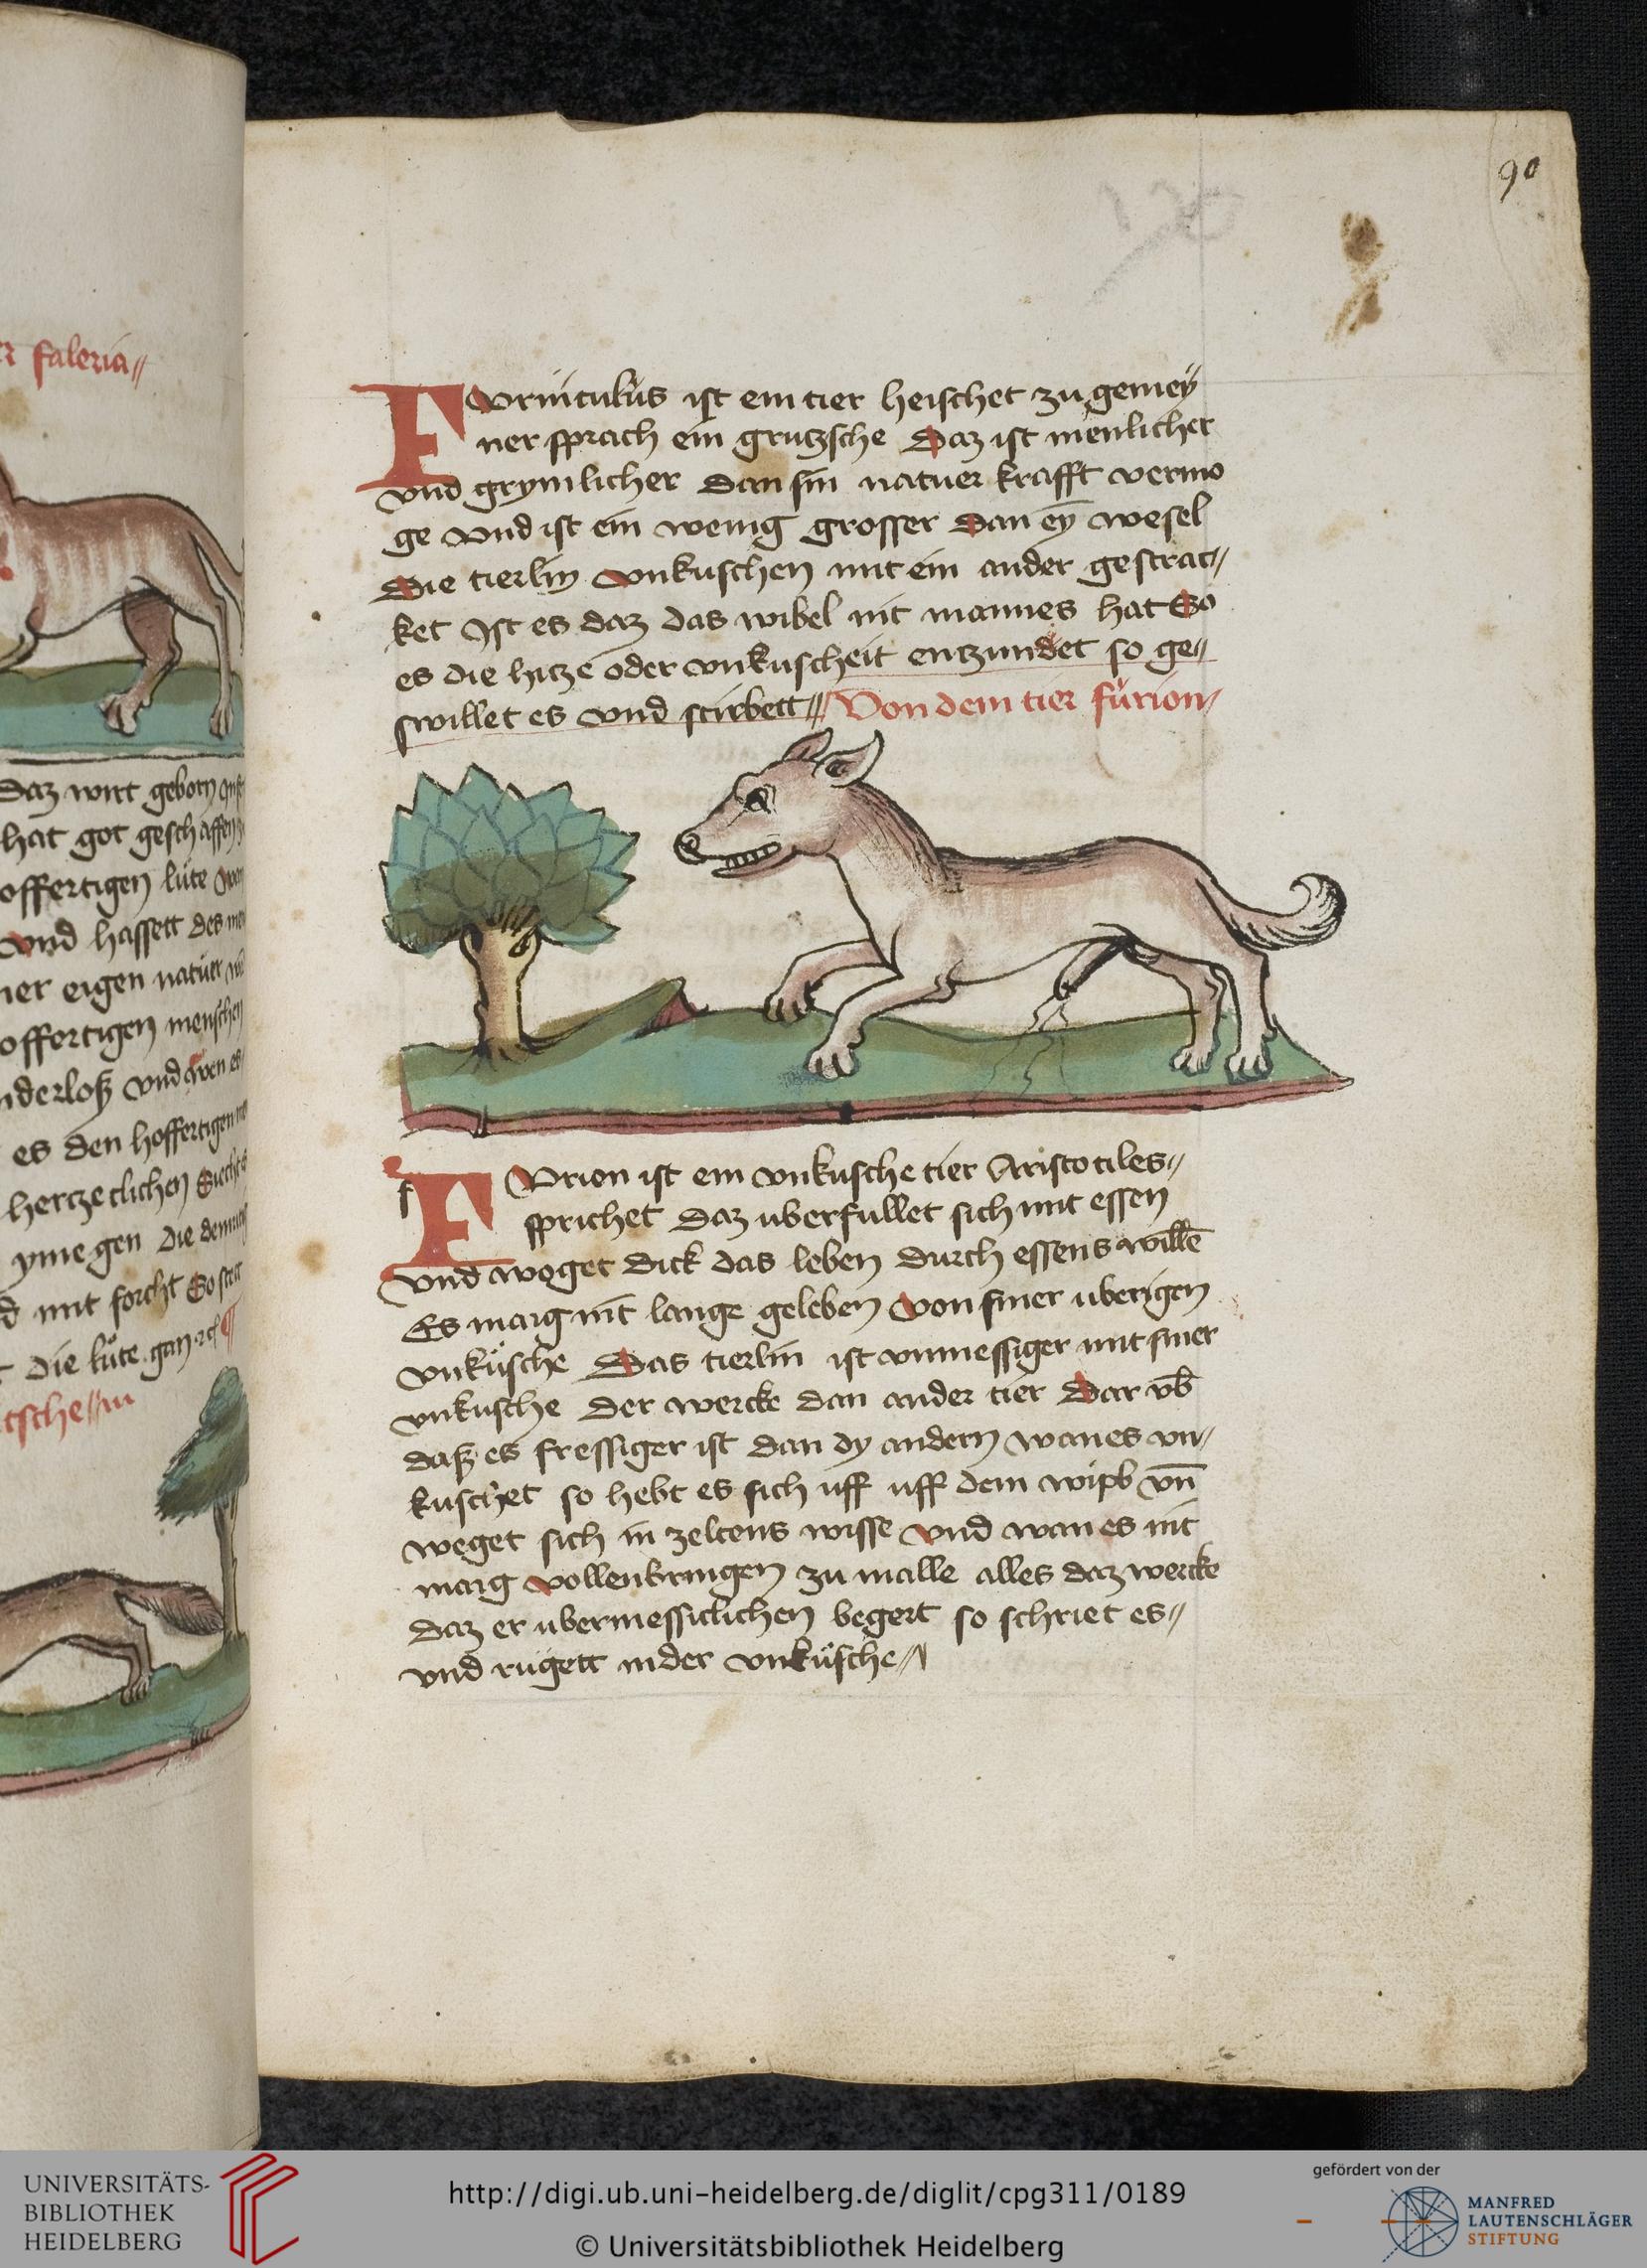 er faleria//
Daz wirt geborn
hat got geschaffen
offertigen lute
vnd hassett des
ner eigen natuer
offortigen menschen
nderloß vnd wen es
es den hoffertigen
hertzetlichen
yme gen die
mit forcht So
die lute gan
tsche//m
90
Furunculus ist ein tier heischet zu gemey
ner sprach ein grutzsche Daz ist menlicher
vnd grymlicher dan sin natuer krafft vermo
ge vnd ist ein wenig grosser dan ey̅ wesel
Die tierlin vnkuschen mit ein ander gestrac//
ket Ist es daz das wibel nit mannes hat So
es die hitze oder vnkuscheit entzundet so ge//
swillet es vnd stirbett// Von dem tier furion//
f
FVrion ist ein vnkusche tier Aristotiles//
sprichet Daz uberfullet sich mit essen
vnd woget dick das leben durch essens wille̅
Es marg nit lange geleben von siner uberigen
vnkusche Das tierlin ist vnmessiger mit siner
vnkusche der wercke dan ander tier Dar vb̅
daß es fressiger ist dan dy andern wan es vn//
kuschet so hebt es sich uff uff dem wipb vn̅
weget sich in zeltens wisse vnd wan es nit
marg vollenbringen zu malle alles daz wercke
daz er ubermessiclichen begert so schriet es//
vnd rugett in der vnkusche//
UNIVERSITÄTS-
BIBLIOTHEK
HEIDELBERG
http://digi.ub.uni-heidelberg.de/diglit/cpg311/0189
© Universitätsbibliothek Heidelberg
gefördert von der
MANFRED
LAUTENSCHLÄGER
STIFTUNG